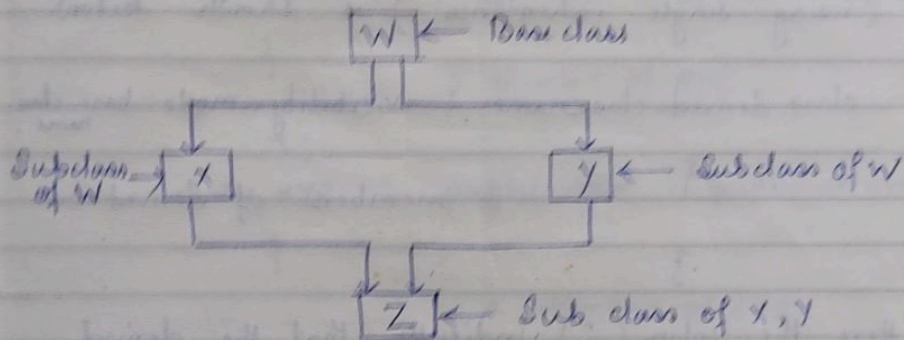 W ← Base class
Subclass of W → X
Y ← Subclass of W
Z ← Sub class of X, Y